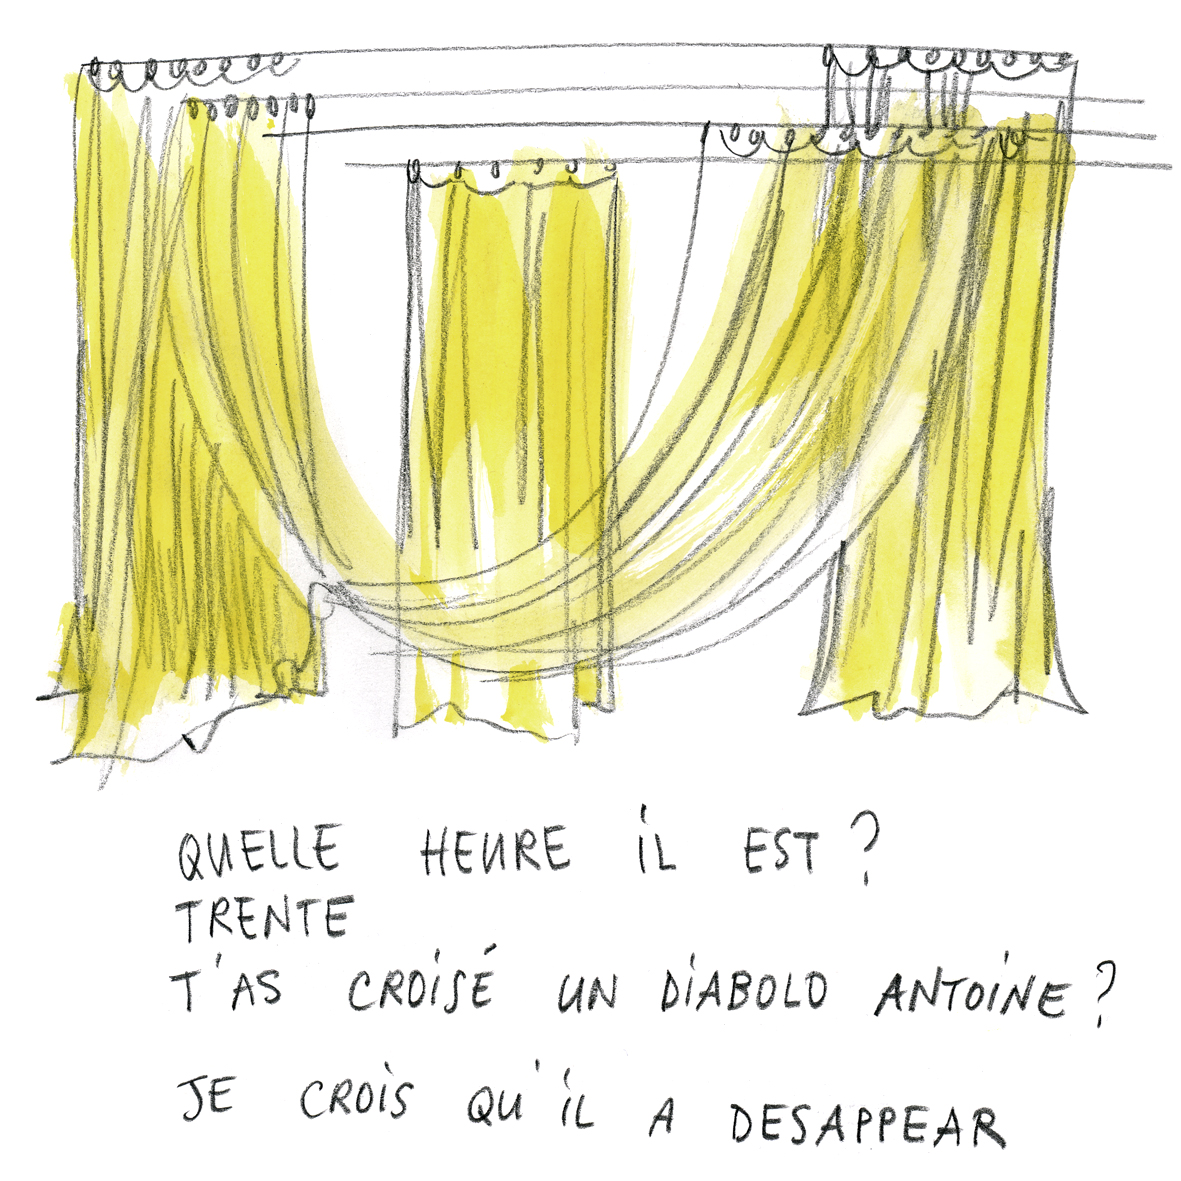 QUELLE HEURE iL EST ?
TRENTE
T'AS CROiSÉ UN DiABOLO ANTOiNE ?
JE CROiS QU'iL A DESAPPEAR